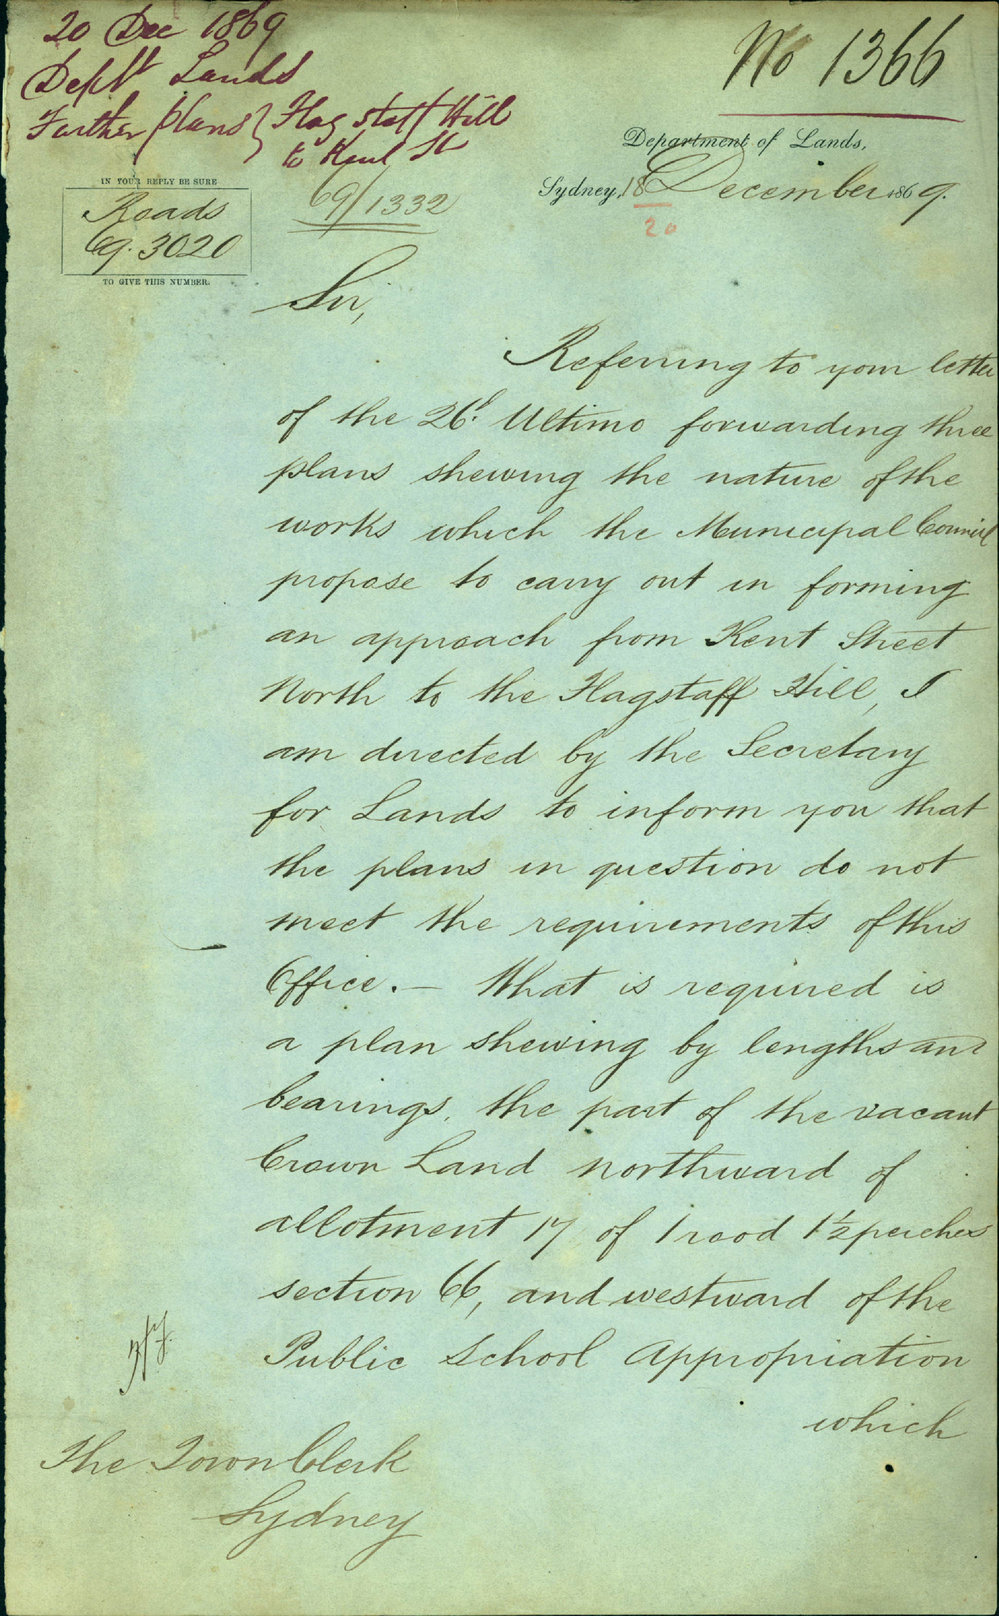 20 Dec 1869
Dept Lands
Further plans } Flag staff Hill
to Kent St
No 1366
Department of Lands,
Sydney, 18 December 1869.
20
IN YOUR REPLY BE SURE
Roads
69.3020
TO GIVE THIS NUMBER.
69/1332
Sir,
Referring to your letter
of the 26th Ultimo forwarding three
plans shewing the nature of the
works which the Municipal Council
propose to carry out in forming
an approach from Kent Street
North to the Flagstaff Hill, I
am directed by the Secretary
for Lands to inform you that
the plans in question do not
meet the requirements of this
Office. — What is required is
a plan shewing by lengths and
bearings, the part of the vacant
Crown Land northward of
allotment 17 of 1 rood 1½ perches
section 66, and westward of the
Public School Appropriation
which
The Town Clerk
Sydney